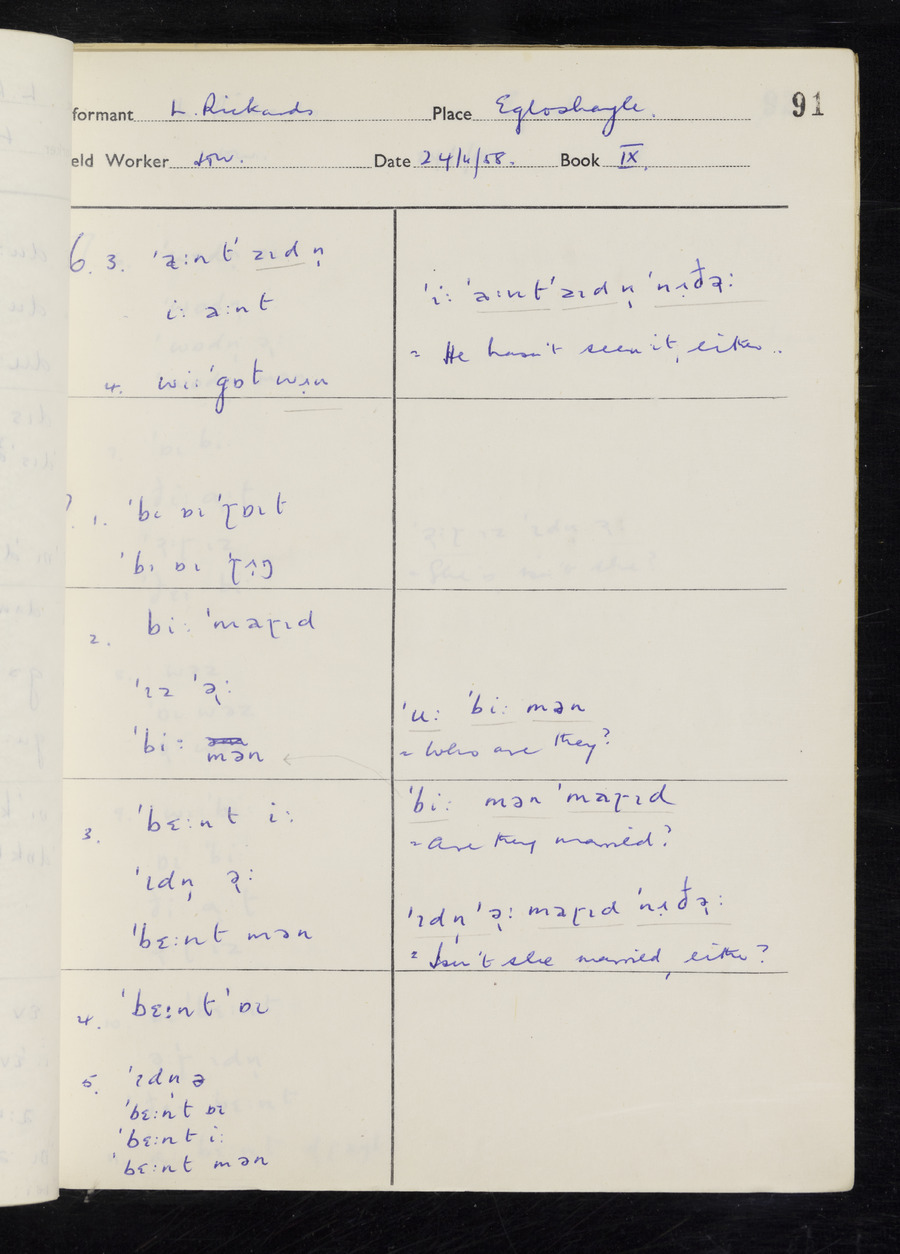 formant L. Rickards Place Egloshayle. 91
eld Worker Date 24/4/58. Book IX.
6. 3. ˈəːnt ˈzɪd n̩
iː əːnt
ˈiː ˈəːnt ˈzɪd n̩ ˈnɪðəː
= He hasn't seen it, either..
4. wiː ˈgɒt wən
1. ˈbɪ ɒɪ ˈɽɒɪt
ˈbɪ ɒɪ ˈɽɒŋ
2. biː ˈmaɽɪd
ˈɪz ˈəː
ˈbiː mən
ˈuː ˈbiː mən
= Who are they?
3. ˈbɛːnt iː
ˈɪdn̩ əː
ˈbɛːnt mən
ˈbiː mən ˈmaɽɪd
= Are they married?
ˈɪdn̩ ˈəː maɽɪd ˈnɪðəː
= Isn't she married, either?
4. ˈbɛːnt ˈɒɪ
5. ˈɪdn̩ ə
ˈbɛːnt ɒɪ
ˈbɛːnt iː
ˈbɛːnt mən